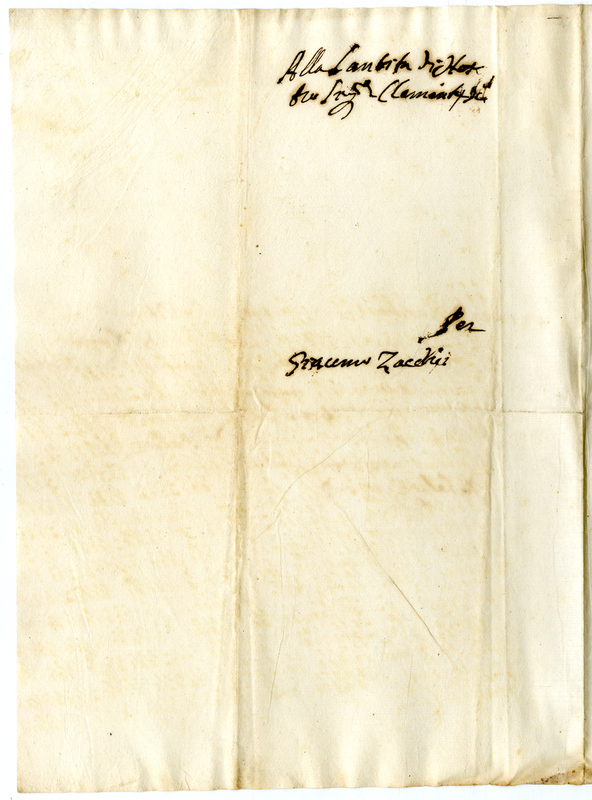 Alla Santità di Nos
tro Sig.re Clemente
Per
Giacomo Zacchi